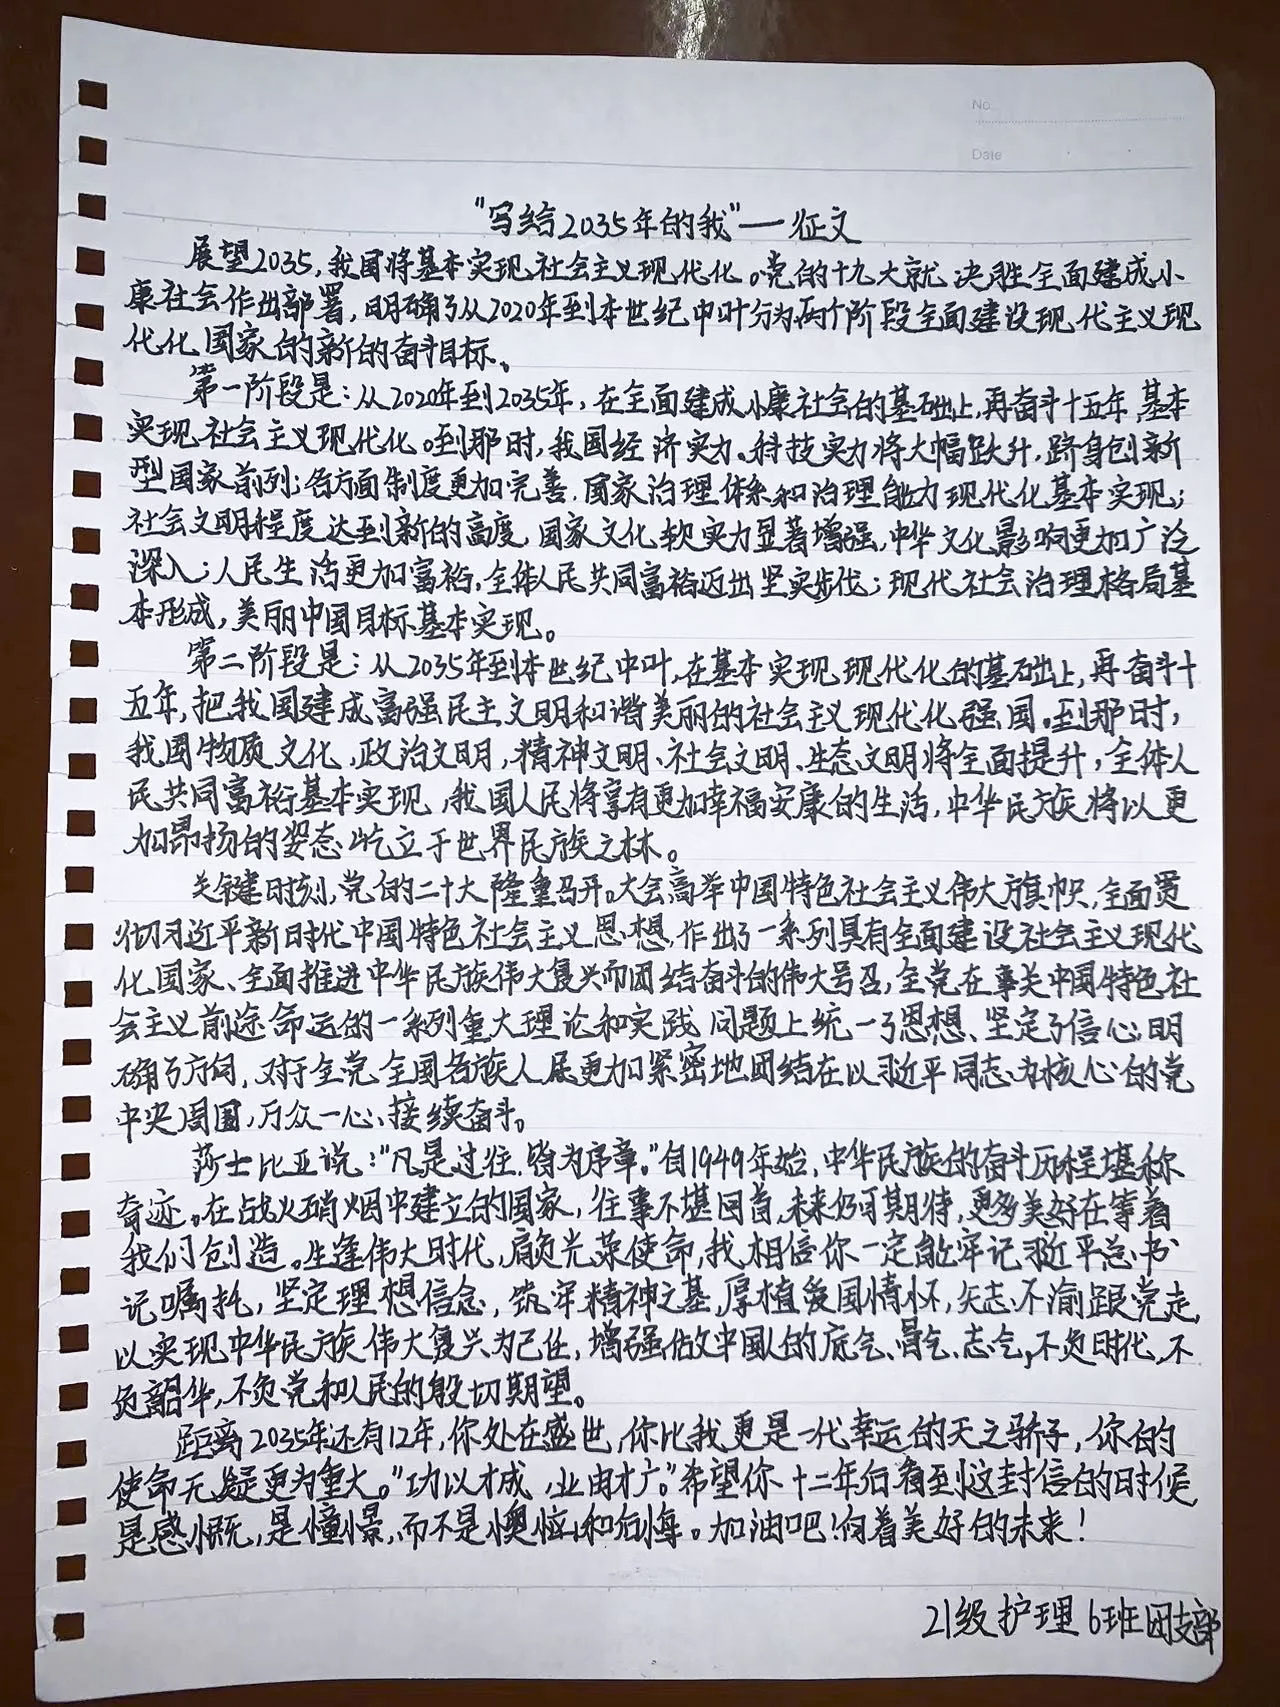 No.
Date
"写给2035年的我"——征文
展望2035,我国将基本实现社会主义现代化。党的十九大就决胜全面建成小
康社会作出部署,明确了从2020年到本世纪中叶分为两个阶段全面建设现代主义现
代化国家的新的奋斗目标。
第一阶段是:从2020年到2035年,在全面建成小康社会的基础上,再奋斗十五年,基本
实现社会主义现代化。到那时,我国经济实力、科技实力将大幅跃升,跻身创新
型国家前列;各方面制度更加完善,国家治理体系和治理能力现代化基本实现;
社会文明程度达到新的高度,国家文化软实力显著增强,中华文化影响更加广泛
深入;人民生活更加富裕,全体人民共同富裕迈出坚实步伐;现代社会治理格局基
本形成,美丽中国目标基本实现。
第二阶段是:从2035年到本世纪中叶,在基本实现现代化的基础上,再奋斗十
五年,把我国建成富强民主文明和谐美丽的社会主义现代化强国。到那时,
我国物质文化、政治文明,精神文明、社会文明、生态文明将全面提升,全体人
民共同富裕基本实现,我国人民将享有更加幸福安康的生活,中华民族将以更
加昂扬的姿态屹立于世界民族之林。
关键时刻,党的二十大隆重召开。大会高举中国特色社会主义伟大旗帜,全面贯
彻习近平新时代中国特色社会主义思想,作出了一系列具有全面建设社会主义现代
化国家、全面推进中华民族伟大复兴而团结奋斗的伟大号召,全党在事关中国特色社
会主义前途命运的一系列重大理论和实践问题上统一了思想、坚定了信心,明
确了方向,对于全党全国各族人民更加紧密地团结在以习近平同志为核心的党
中央周围,万众一心、接续奋斗。
莎士比亚说:"凡是过往,皆为序章。"自1949年始,中华民族的奋斗历程堪称
奇迹。在战火硝烟中建立的国家,往事不堪回首,未来仍可期待,更多美好在等着
我们创造。生逢伟大时代,肩负光荣使命,我相信你一定能牢记习近平总书
记嘱托,坚定理想信念,筑牢精神之基,厚植爱国情怀,矢志不渝跟党走,
以实现中华民族伟大复兴为己任,增强做中国人的底气、骨气、志气,不负时代,不
负韶华,不负党和人民的殷切期望。
距离2035年还有12年,你处在盛世,你比我更是一代幸运的天之骄子,你的
使命无疑更为重大。"功以才成,业由才广。"希望你十二年后看到这封信的时候,
是感慨,是憧憬,而不是懊恼和后悔。加油吧!向着美好的未来!
21级护理6班团支部